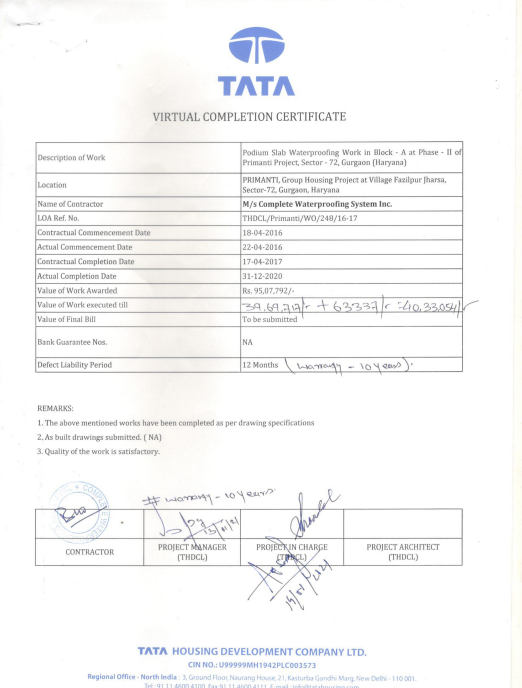 TATA
VIRTUAL COMPLETION CERTIFICATE
Description of Work
Podium Slab Waterproofing Work in Block - A at Phase - II of
Primanti Project, Sector - 72, Gurgaon (Haryana)
Location
PRIMANTI, Group Housing Project at Village Fazilpur Jharsa,
Sector-72, Gurgaon, Haryana
Name of Contractor
M/s Complete Waterproofing System Inc.
LOA Ref. No.
THDCL/Primanti/WO/248/16-17
Contractual Commencement Date
18-04-2016
Actual Commencement Date
22-04-2016
Contractual Completion Date
17-04-2017
Actual Completion Date
31-12-2020
Value of Work Awarded
Rs. 95,07,792/-
Value of Work executed till
39,69,717/- + 63337/- = 40,33,054/-
Value of Final Bill
To be submitted
Bank Guarantee Nos.
NA
Defect Liability Period
12 Months (warranty - 10 Years).
REMARKS:
1. The above mentioned works have been completed as per drawing specifications
2. As built drawings submitted. ( NA)
3. Quality of the work is satisfactory.
# warranty - 10 Years
CONTRACTOR
PROJECT MANAGER
(THDCL)
PROJECT IN CHARGE
(THDCL)
PROJECT ARCHITECT
(THDCL)
TATA HOUSING DEVELOPMENT COMPANY LTD.
CIN NO.: U99999MH1942PLC003573
Regional Office - North India : 3, Ground Floor, Naurang House, 21, Kasturba Gandhi Marg, New Delhi - 110 001.
Tel : 91 11 4600 4100, Fax 91 11 4600 4111, E-mail : info@tatahousing.com